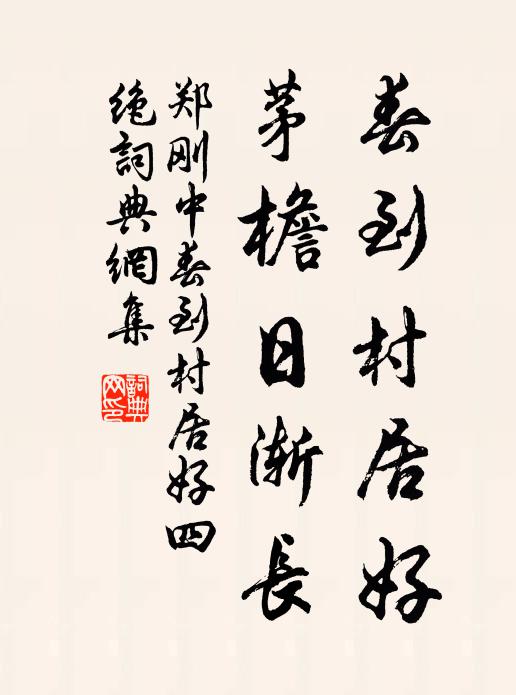 春到村居好
茅檐日渐長
郑刚中春到村居好四
绝詞典網集
詞典网印